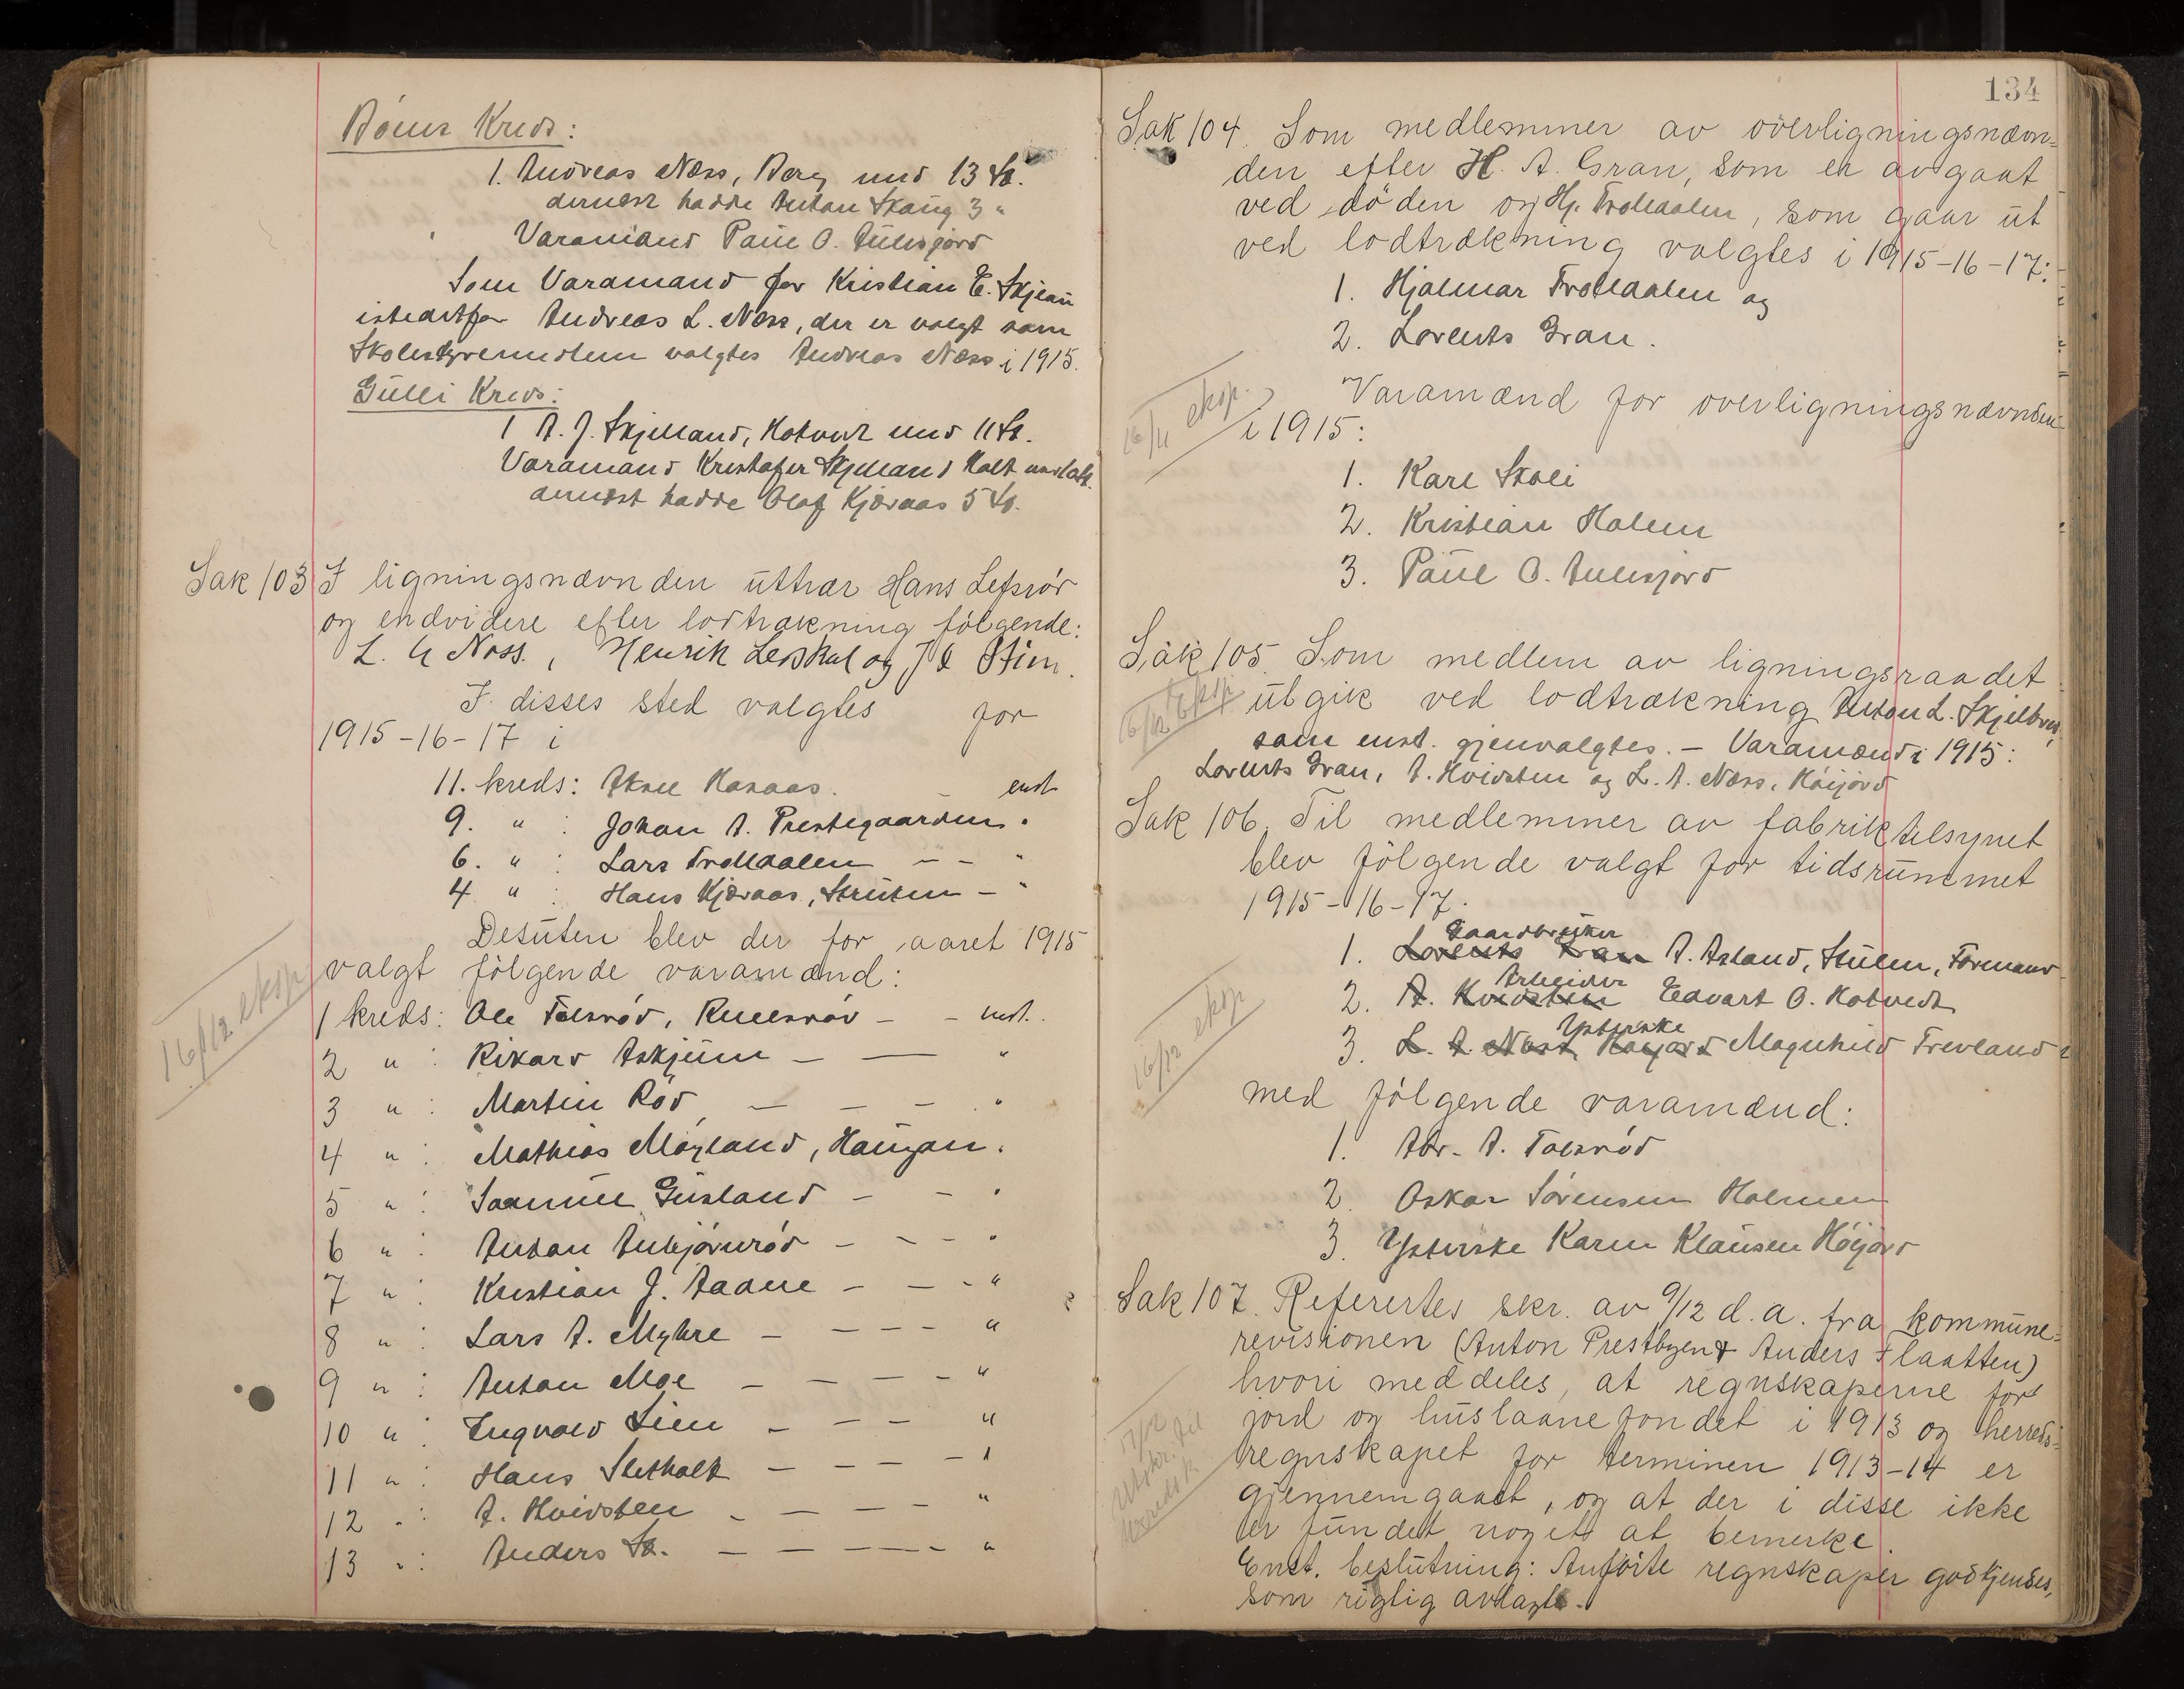 Böens Kreds:
1. Andreas Næss, Berg med 13 St.
dernæst hadde Anton Skaug 3 "
Varamand Paul O. Aulesjord
Som Varamand for Kristian E. Skjeau
istedetfor Andreas L. Næss, der er valgt som
Skolestyremedlem valgtes Andreas Næss i 1915.
Gulli Kreds:
1 A. J. Skjelland, Kotvedt med 11 St.
Varamand Kristofer Skjelland Holt
dernæst hadde Olaf Kjæraas 5 St.
Sak 103 I ligningsnævnden uttrær Hans Lefsrör
og endvidere efter lodtrækning følgende:
L. Næss, Henrik Leiskal og J Stien.
I disses sted valgtes for
1915-16-17 i
11. kreds: Aksel Kanaas. enst.
9. " : Johan A. Prestegaarden "
6. " : Lars Trolldalen — — "
4 " : Hans Kjæraas, Struten — "
Desuten blev der for aaret 1915
valgt følgende varamænd:
16/12 eksp.
1 kreds: Ole Tolsröd, — — enst.
2 " : Rikard Askjum — — "
3 " : Martin Röd — — — "
4 " : Mathias Möyland, Haugan "
5 " : Samuel Gusland — — "
6 " : Anton Aulesjordröd — — — "
7 " : Kristian J. Aadne — — — "
8 " : Lars A. Myhre — — — — "
9 " : Anton Moe — — — — "
10 " : Ingvald Lien — — — "
11 " : Hans Sletholt — — — — "
12 " : A. Hvidsten — — — — "
13 " : Anders — — — — — "
134
Sak 104. Som medlemmer av overligningsnævn-
den efter H. A. Gran, som er avgaat
ved döden og Hj. Trolldalen, som gaar ut
ved lodtrækning valgtes i 1915-16-17:
1. Hjalmar Trolldalen og
2. Lorents Gran.
Varamænd for overligningsnævnden
16/12 eksp.
i 1915:
1. Karl Skoli
2. Kristian Holem
3. Paul O. Aulesjord
Sak 105. Som medlem av ligningsraadet
16/12 eksp
utgik ved lodtrækning Anton L. Skjelbred,
som enst. gjenvalgtes. — Varamænd i 1915:
Lorents Gran, A. Hvidsten og L. A. Næss, Höijord
Sak 106. Til medlemmer av fabriktilsynet
blev fölgende valgt for tidsrummet
1915-16-17.
Gaardbruker
1. Lorents Gran A. Asland, Stulen, Formand
Arbeider
2. A. Hvidsten Edvart O. Kotvedt
16/12 eksp
Ysterske
3. L. A. Næss, Höijord Magnhild Trevland
med fölgende varamænd:
1. Abr. A. Tolsröd
2. Oskar Sörensen Holmen
3. Ysterske Karen Klausen Höijord
Sak 107. Referertes skr. av 9/12 d.a. fra kommune-
revisionen (Anton Prestbyen & Anders Flaatten)
hvori meddeles, at regnskaperne for
jord og huslaanefondet i 1913 og herreds-
17/12
Utskr. til
regnskapet for terminen 1913-14 er
gjennemgaaet, og at der i disse ikke
er fundet noget at bemerke.
Enst. beslutning: Anförte regnskaper godkjendes,
som rigtig avlagte.